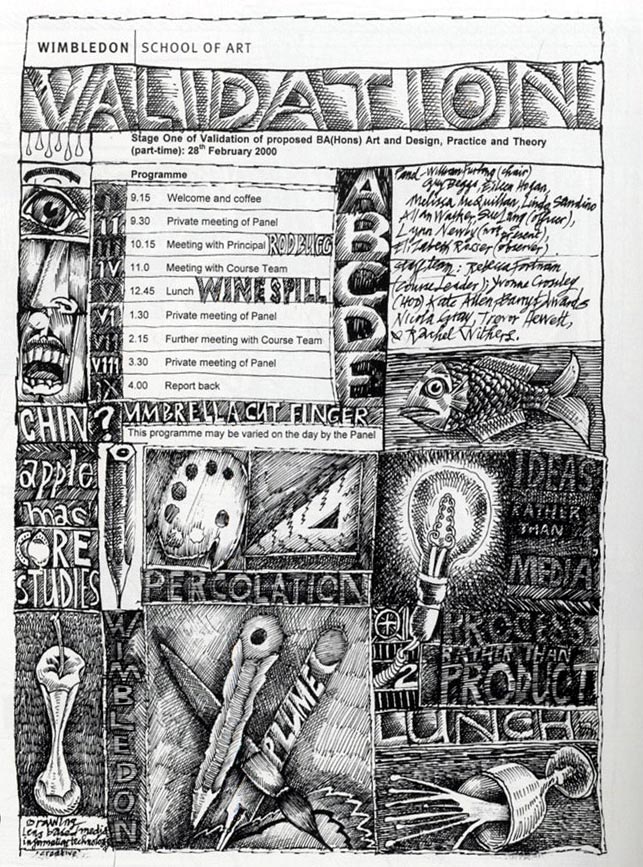 WIMBLEDON SCHOOL OF ART
VALIDATION
Stage One of Validation of proposed BA(Hons) Art and Design, Practice and Theory
(part-time): 28th February 2000
Programme
I 9.15 Welcome and coffee
II 9.30 Private meeting of Panel
III 10.15 Meeting with Principal ROD BUGG
IV 11.0 Meeting with Course Team
V 12.45 Lunch WINE SPILL
VI 1.30 Private meeting of Panel
VII 2.15 Further meeting with Course Team
VIII 3.30 Private meeting of Panel
IX 4.00 Report back
UMBRELLA CUT FINGER
This programme may be varied on the day by the Panel
A
B
C
D
E
Panel - William Furlong (chair)
Guy Begga, Eileen Hogan,
Melissa McQuillan, Linda Sandino
Allan Walker, Sue Lang (officer),
Lynn Newby (not present)
Elizabeth Rosser (observer)
Staff team: Rebecca Fortnum
(Course Leader); Yvonne Crossley
(HOD) Kate Allen, Barry Edwards
Nicola Gray, Trevor Hewett,
& Rachel Withers.
CHIN ?
apple
mac
CORE
STUDIES
PERCOLATION
IDEAS
RATHER
THAN
MEDIA
PROCESS
RATHER THAN
PRODUCT
1
2
LUNCH
WIMBLEDON
PLUME
Drawing
lens based media
information technology